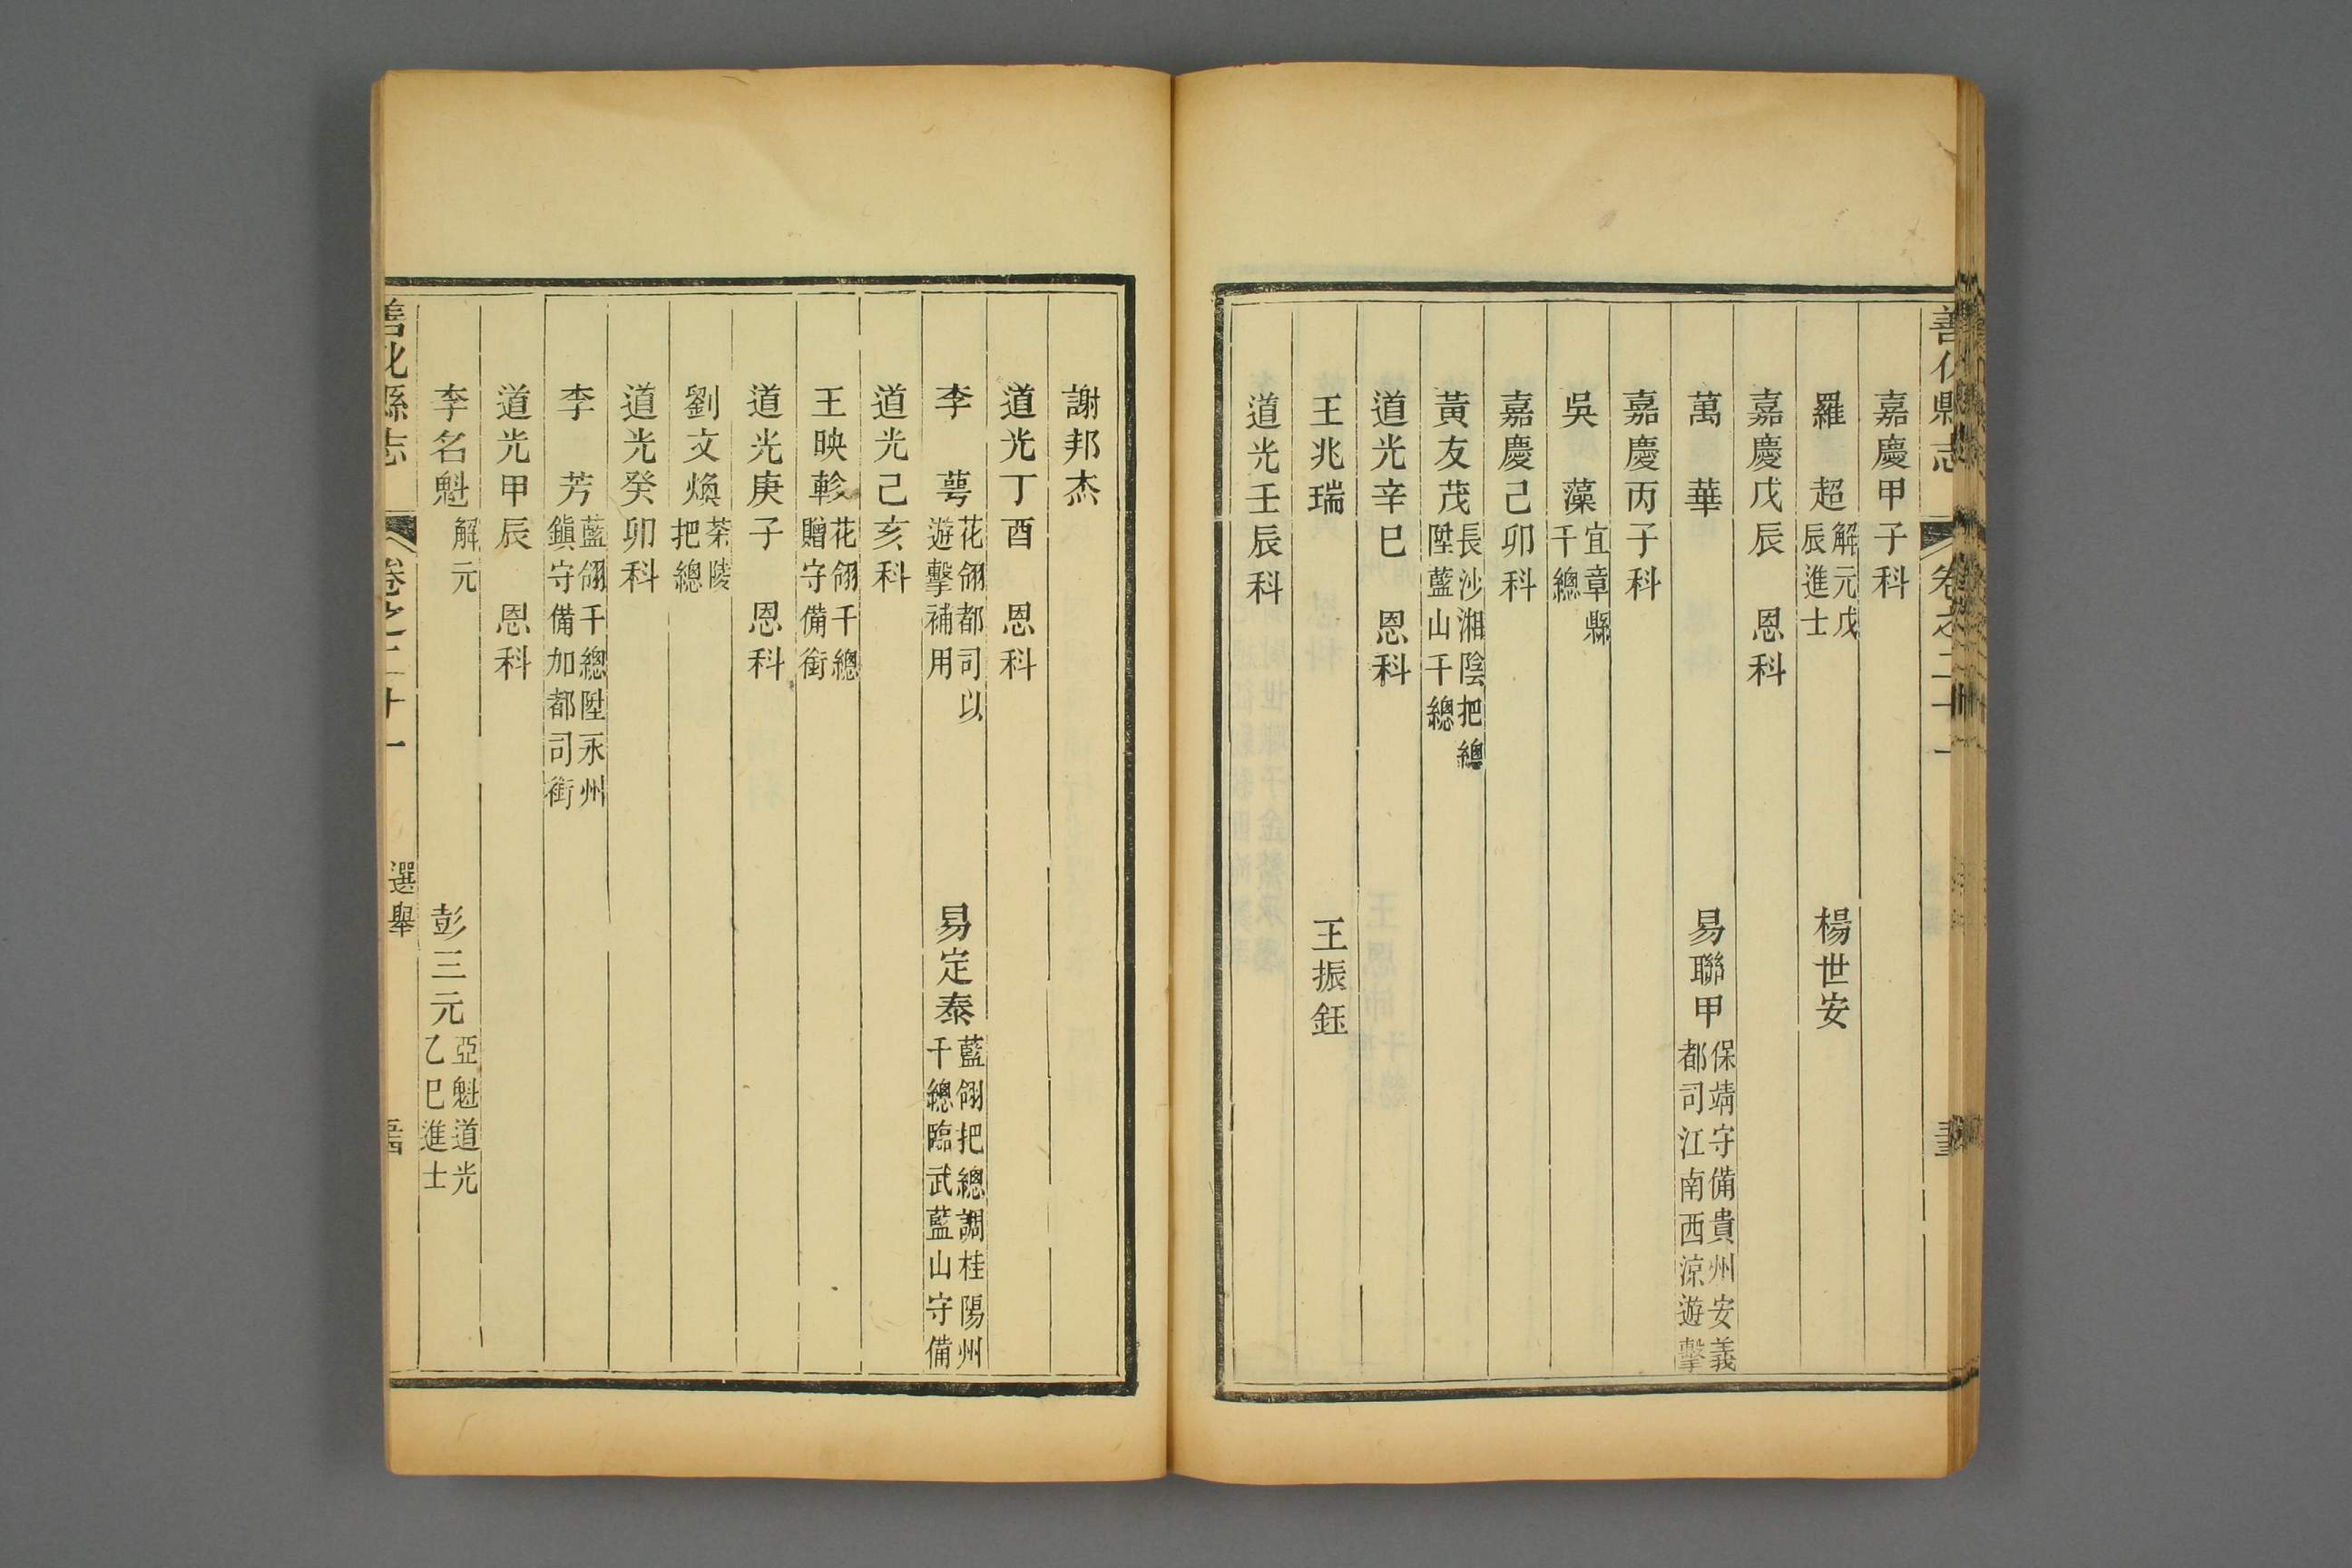 善化縣志 卷之二十一
嘉慶甲子科
羅 超 解元戊辰進士 楊世安
嘉慶戊辰 恩科
萬 華 易聯甲 保靖守備貴州安義都司江南西涼遊擊
嘉慶丙子科
吳 藻 宜章縣千總
嘉慶己卯科
黃友茂 長沙湘陰把總陞藍山千總
道光辛巳 恩科
王兆瑞 王振鈺
道光壬辰科
謝邦杰
道光丁酉 恩科
李 萼 花翎都司以遊擊補用 易定泰 藍翎把總調桂陽州千總臨武藍山守備
道光己亥科
王映軫 花翎千總贈守備銜
道光庚子 恩科
劉文煥 茶陵把總
道光癸卯科
李 芳 藍翎千總陞永州鎭守備加都司銜
道光甲辰 恩科
李名魁 解元 彭三元 亞魁道光乙巳進士
善化縣志 卷之二十一 選舉